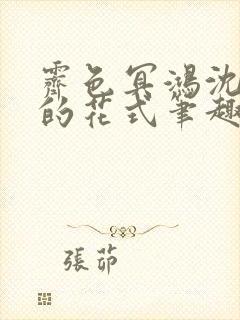 霽色冥鴻沈
的花式筆趣
張茆